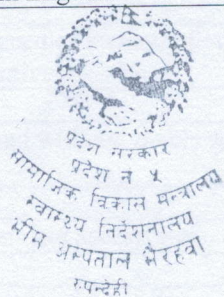 प्रदेश सरकार
प्रदेश नं ५
सामाजिक विकास मन्त्रालय
स्वास्थ्य निर्देशनालय
भीम अस्पताल भैरहवा
रुपन्देही